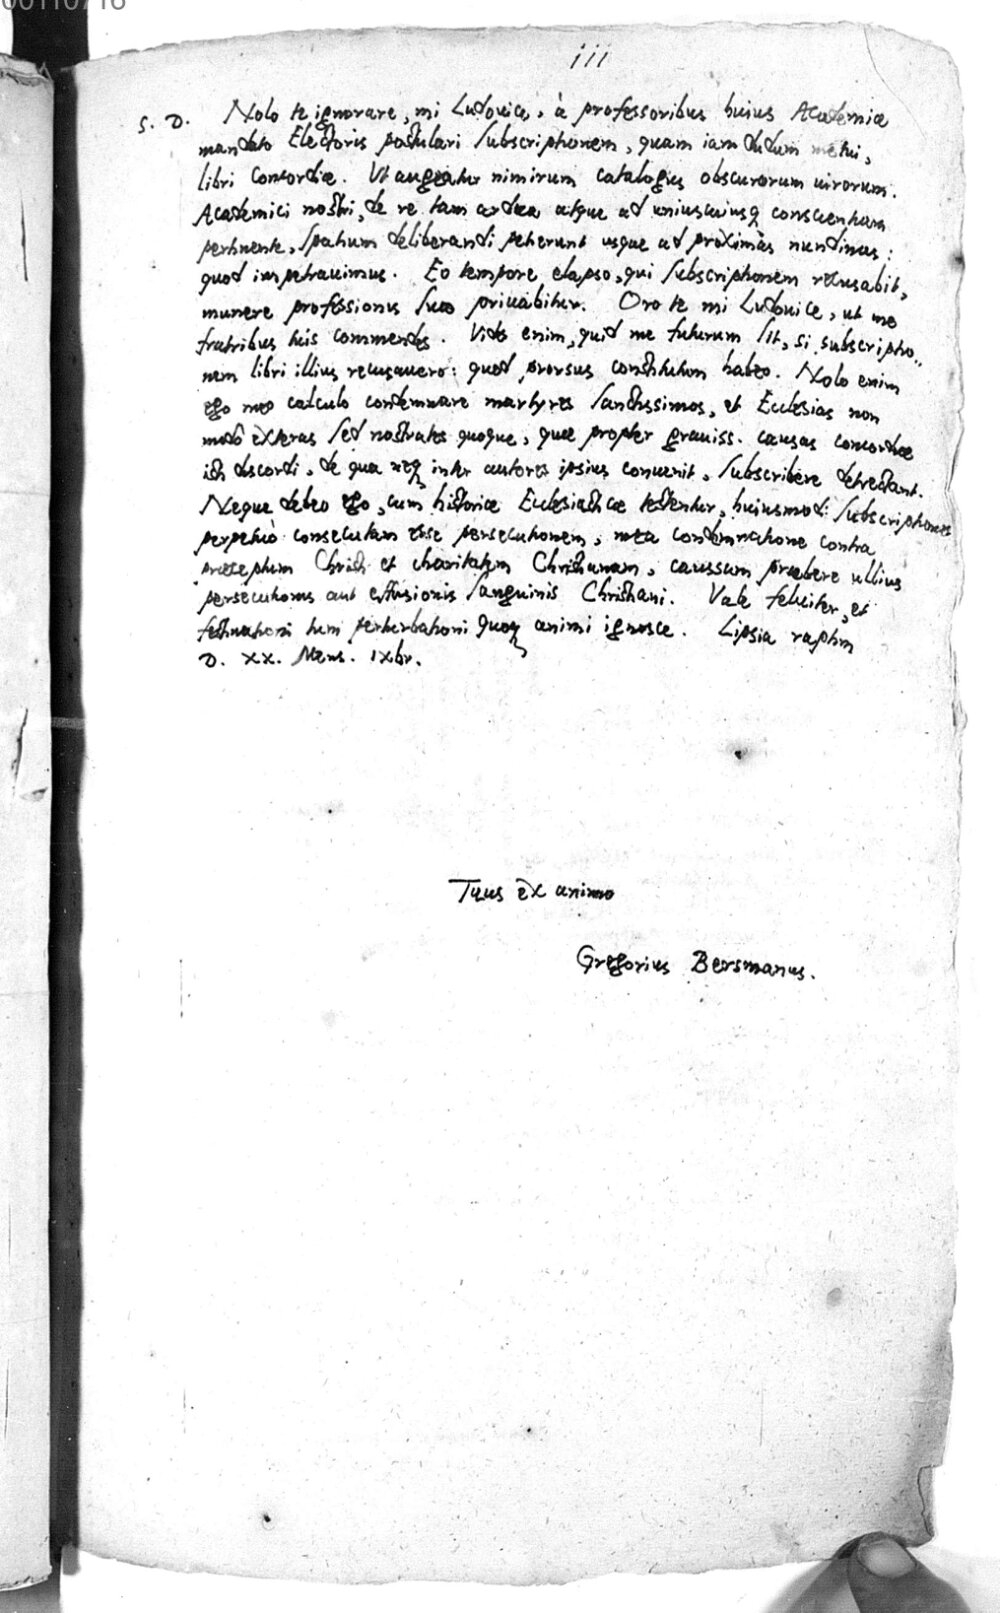 00110716
iii
S. D. Nolo te ignorare, mi Ludovice, à professoribus huius Academiæ
mandato Electoris postulari subscriptionem, quam iam dudum metui,
libri Concordiæ. Ut augeatur nimirum catalogus obscurorum uirorum.
Academici nostri, de re tam ardua atque ad uniuscuiusq conscientiam
pertinente, spatium deliberandi petierunt usque ad proximas nundinas:
quod impetrauimus. Eo tempore elapso, qui subscriptionem recusabit,
munere professionis suo priuabitur. Oro te mi Ludouice, ut me
fratribus tuis commendes. Vides enim, quid me futurum sit, si subscriptio-
nem libri illius recusauero: quod prorsus constitutum habeo. Nolo enim
ego meo calculo condemnare martyres sanctissimos, et Ecclesias non
modò exteras sed nostrates quoque, quæ propter grauiss. causas concordiæ
isti discordi, de qua neq inter autores ipsius conuenit, subscribere detrectant.
Neque debeo ego, cum historiæ Ecclesiasticæ testentur, huiusmodi subscriptiones
perpetuò consecutam esse persecutionem, mea condemnatione contra
præceptum Christi et charitatem Christianam, caussam præbere ullius
persecutionis aut effusionis sanguinis Christiani. Vale feliciter, et
festinationi tum perturbationi quoq animi ignosce. Lipsia raptim
D. XX. Mens. IXbr.
Tuus ex animo
Gregorius Bersmanus.